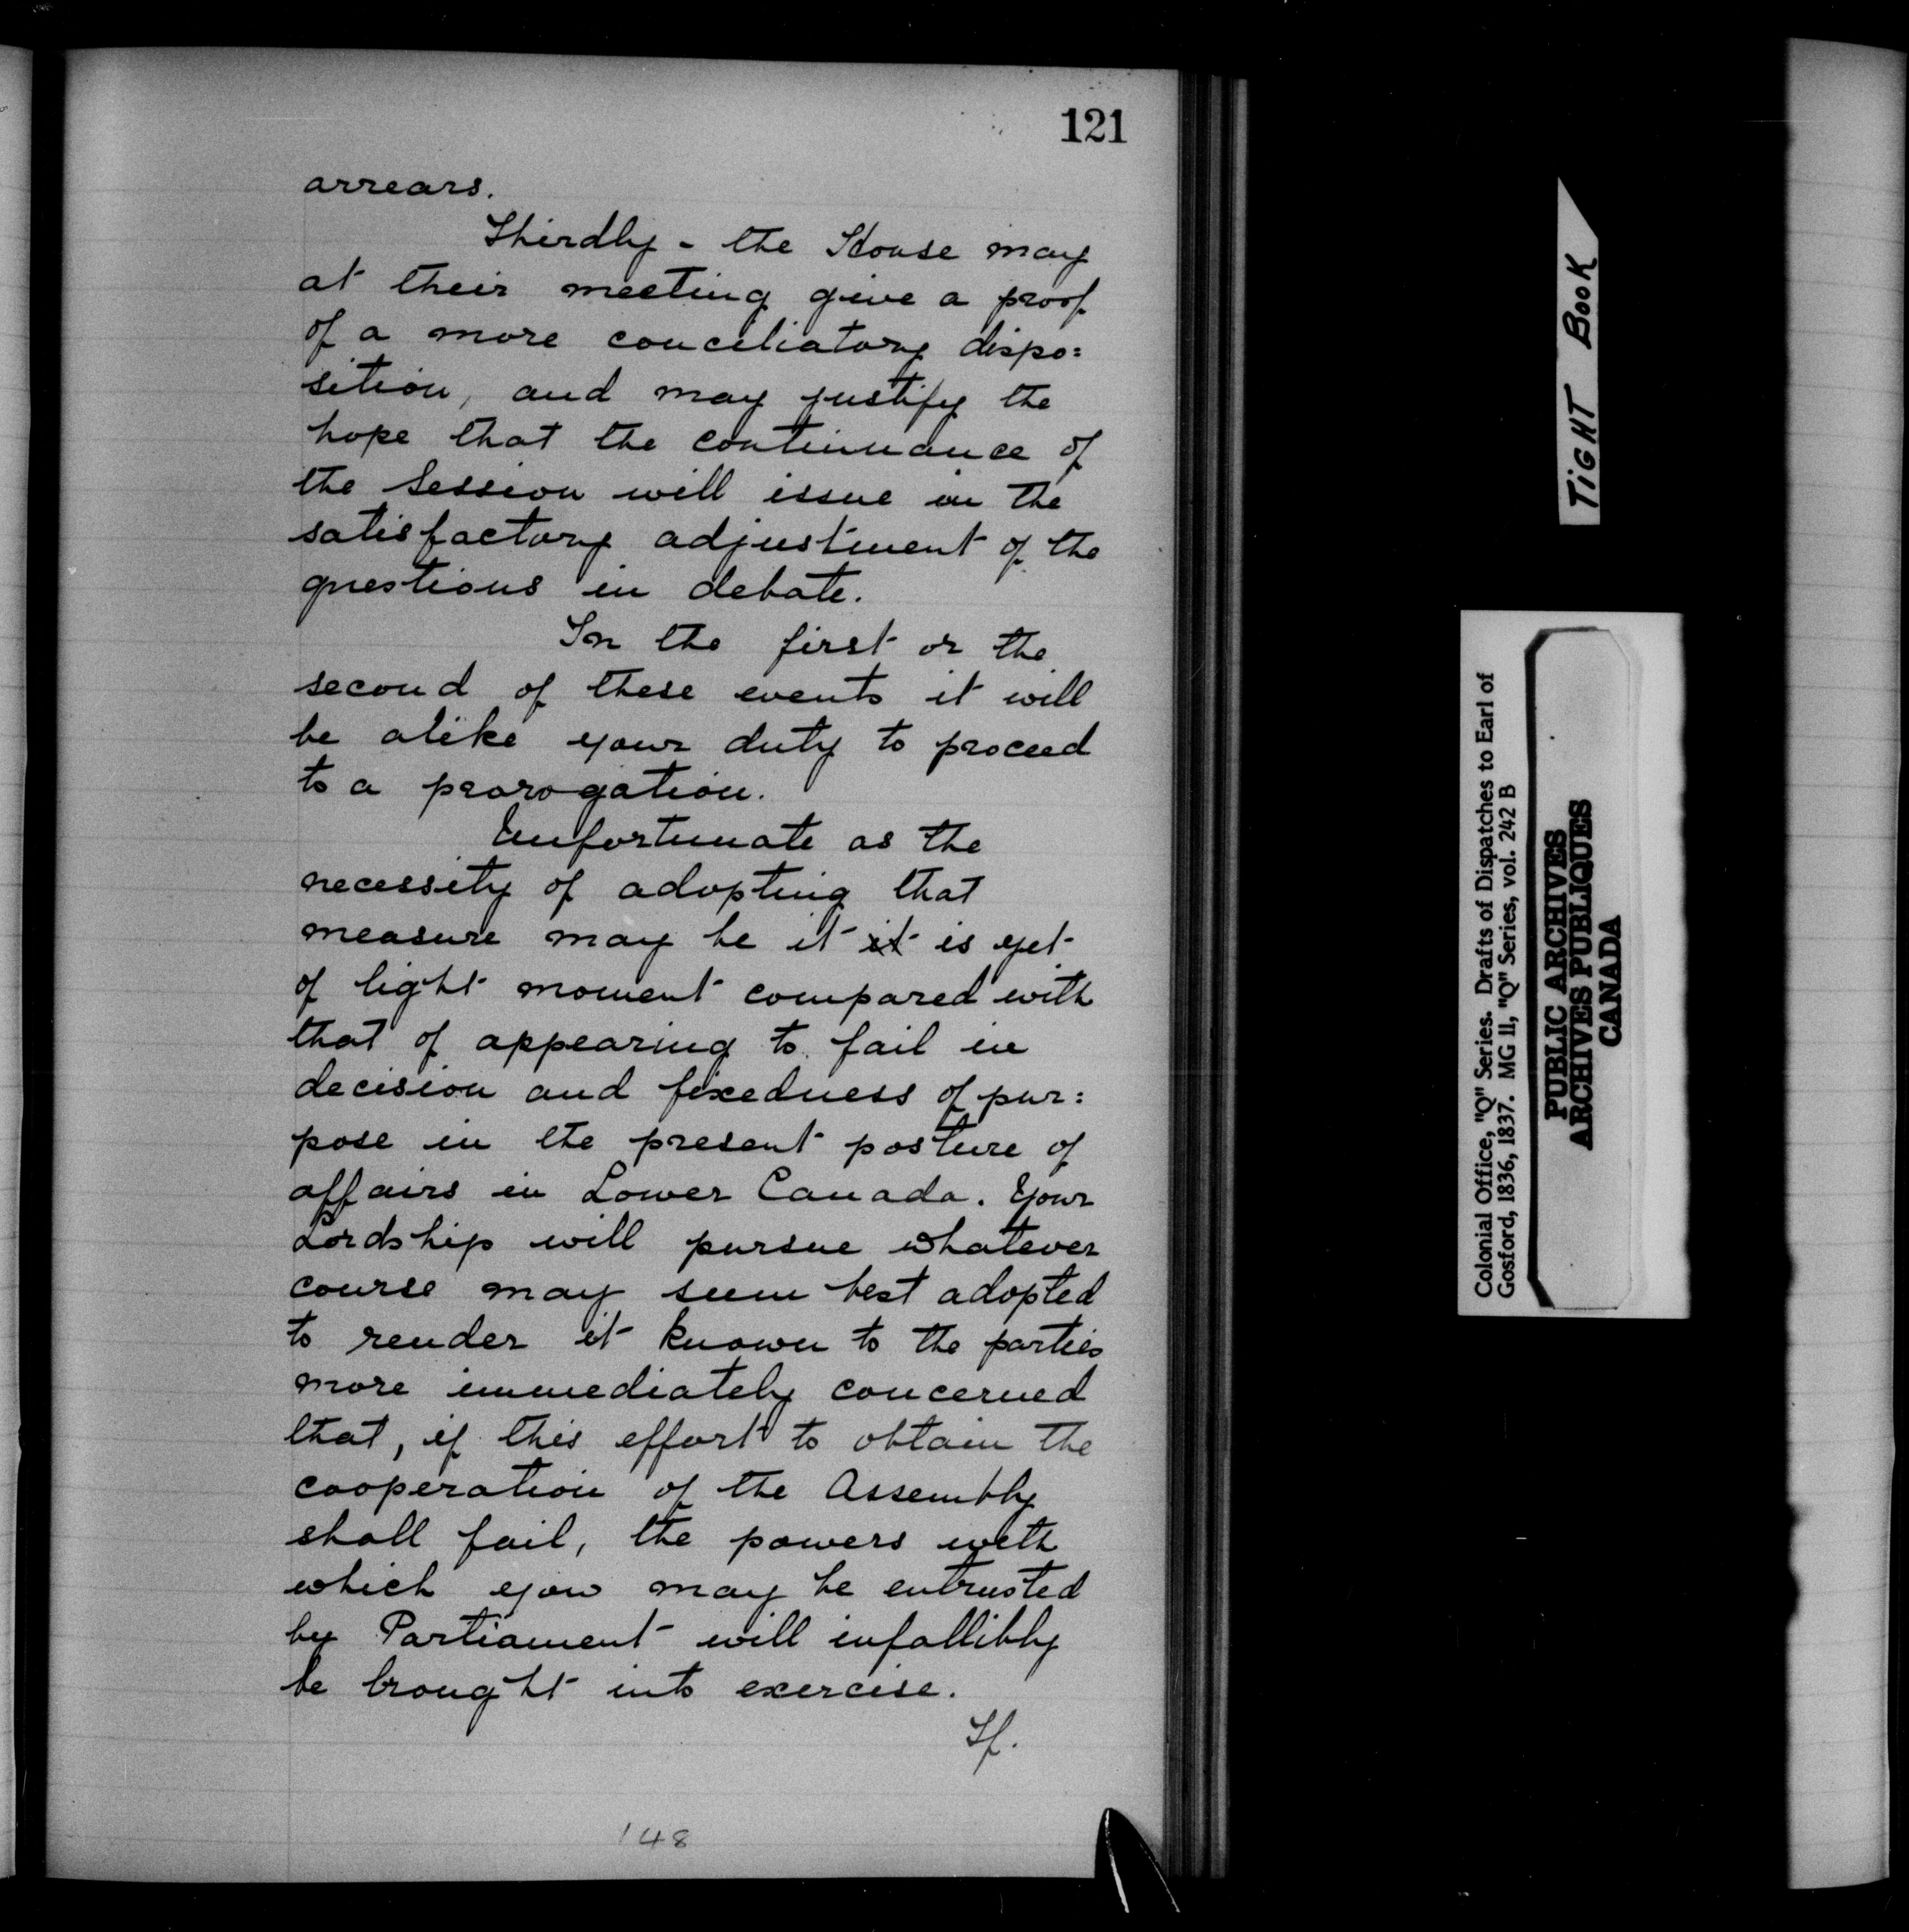 121
arrears.
Thirdly - the House may
at their meeting give a proof
of a more conciliatory dispo=
sition, and may justify the
hope that the continuance of
the Session will issue in the
satisfactory adjustment of the
questions in debate.
In the first or the
second of these events it will
be alike your duty to proceed
to a prorogation.
Unfortunate as the
necessity of adopting that
measure may be it it is yet
of light moment compared with
that of appearing to fail in
decision and fixedness of pur=
pose in the present posture of
affairs in Lower Canada. Your
Lordship will pursue whatever
course may seem best adopted
to render it known to the parties
more immediately concerned
that, if this effort to obtain the
cooperation of the Assembly
shall fail, the powers with
which you may be entrusted
by Parliament will infallibly
be brought into exercise.
If.
148
TIGHT BOOK
Colonial Office, "Q" Series. Drafts of Dispatches to Earl of
Gosford, 1836, 1837. MG 11, "Q" Series, vol. 242 B
PUBLIC ARCHIVES
ARCHIVES PUBLIQUES
CANADA